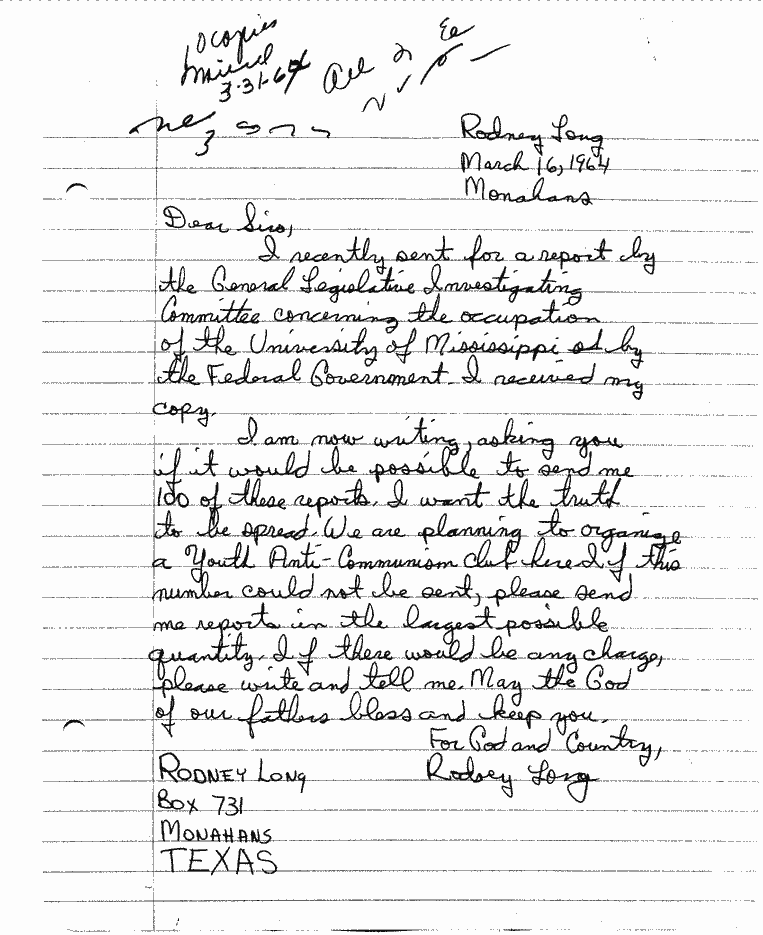 copies
mailed
3-31-64
All
Rodney Long
March 16, 1964
Monahans
Dear Sirs,
I recently sent for a report by
the General Legislative Investigating
Committee concerning the occupation
of the University of Mississippi by
the Federal Government. I received my
copy.
I am now writing, asking you
if it would be possible to send me
100 of these reports. I want the truth
to be spread. We are planning to organize
a Youth Anti-Communism club here. If this
number could not be sent, please send
me reports in the largest possible
quantity. If there would be any charge,
please write and tell me. May the God
of our fathers bless and keep you.
For God and Country,
RODNEY LONG Rodney Long
BOX 731
MONAHANS
TEXAS